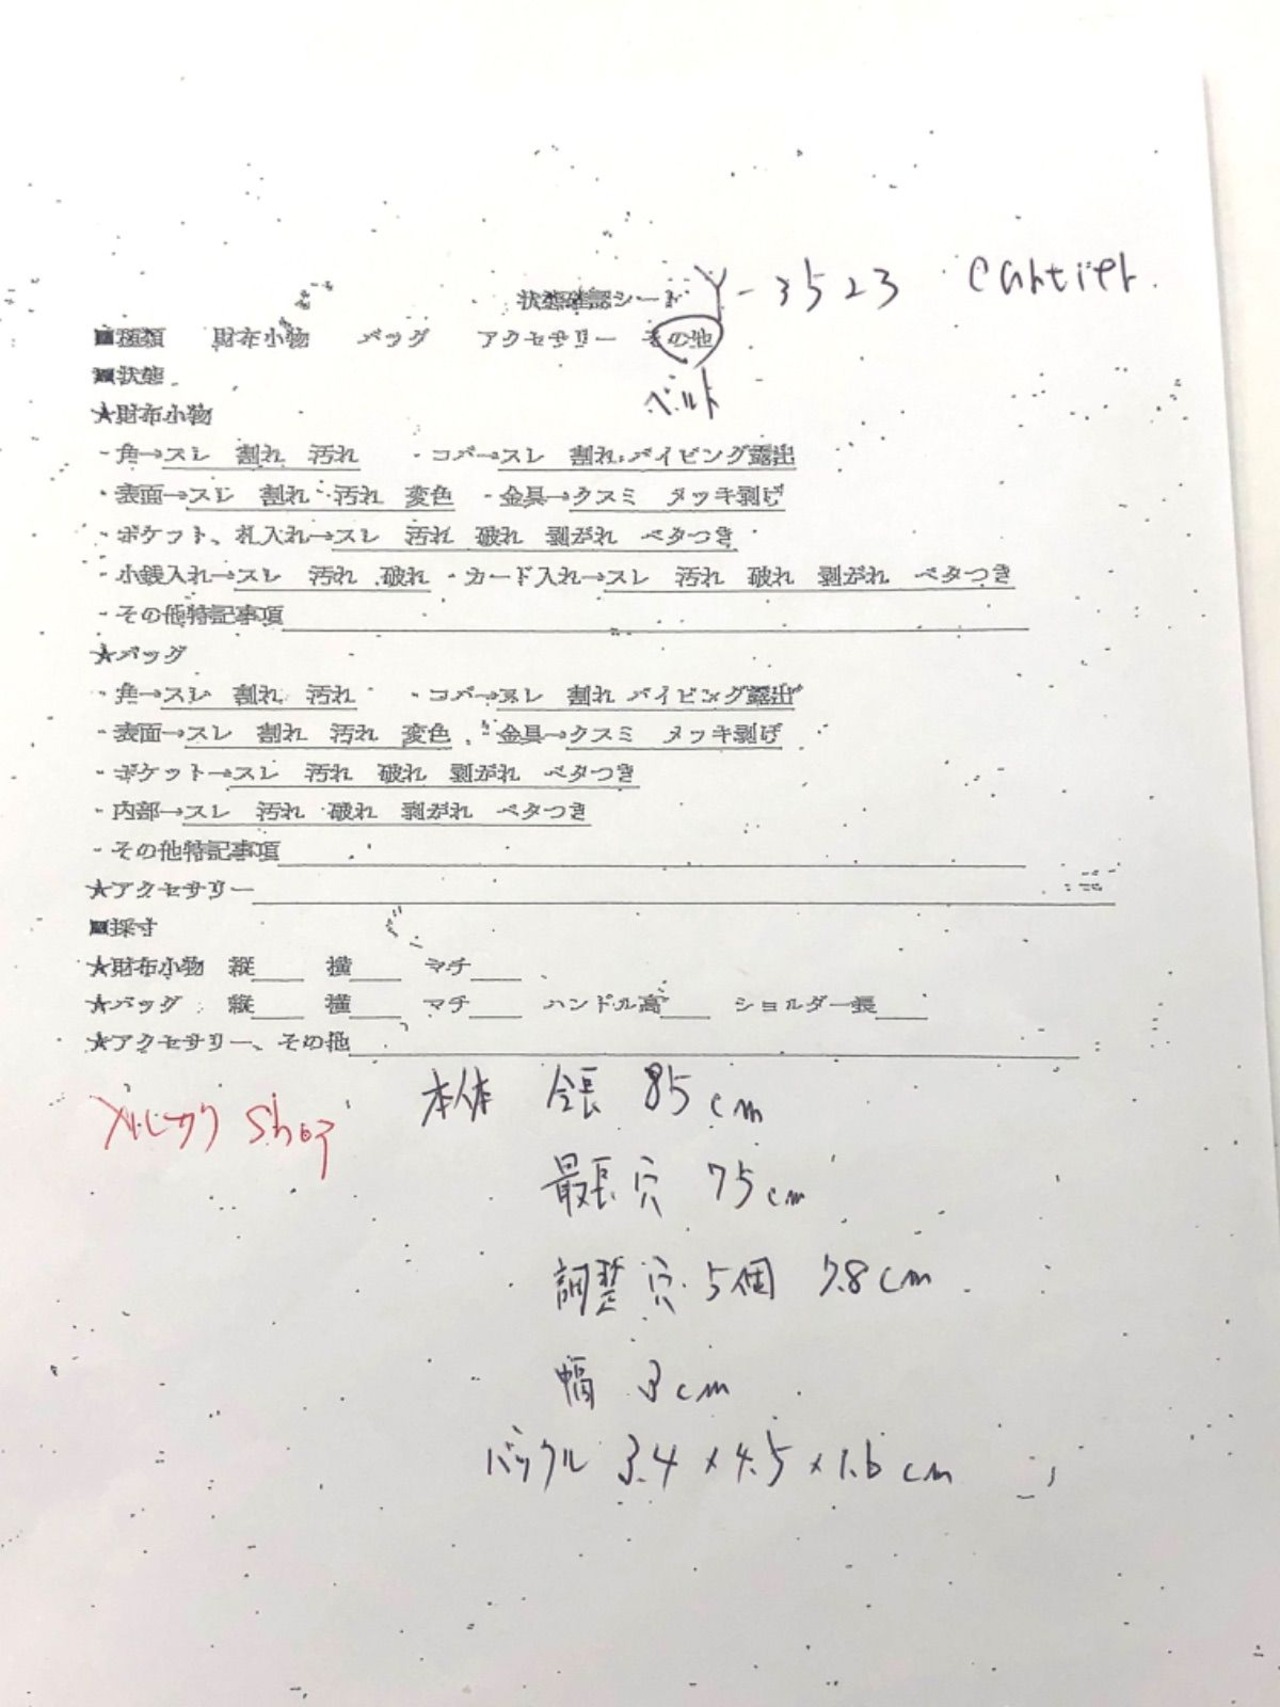 状態確認シート Y-3523 Cartier
■種類 財布小物 バッグ アクセサリー その他
■状態 ベルト
★財布小物
・角→スレ 割れ 汚れ ・コバ→スレ 割れ パイピング露出
・表面→スレ 割れ 汚れ 変色 ・金具→クスミ メッキ剥げ
・ポケット、札入れ→スレ 汚れ 破れ 剥がれ ベタつき
・小銭入れ→スレ 汚れ 破れ ・カード入れ→スレ 汚れ 破れ 剥がれ ベタつき
・その他特記事項
★バッグ
・角→スレ 割れ 汚れ ・コバ→スレ 割れ パイピング露出
・表面→スレ 割れ 汚れ 変色 ・金具→クスミ メッキ剥げ
・ポケット→スレ 汚れ 破れ 剥がれ ベタつき
・内部→スレ 汚れ 破れ 剥がれ ベタつき
・その他特記事項
★アクセサリー
■採寸
★財布小物 縦 横 マチ
★バッグ 縦 横 マチ ハンドル高 ショルダー長
★アクセサリー、その他
本体 全長 85cm
shop
最長穴 75cm
調整穴 5個 7.8cm
幅 3cm
バックル 3.4×4.5×1.6cm